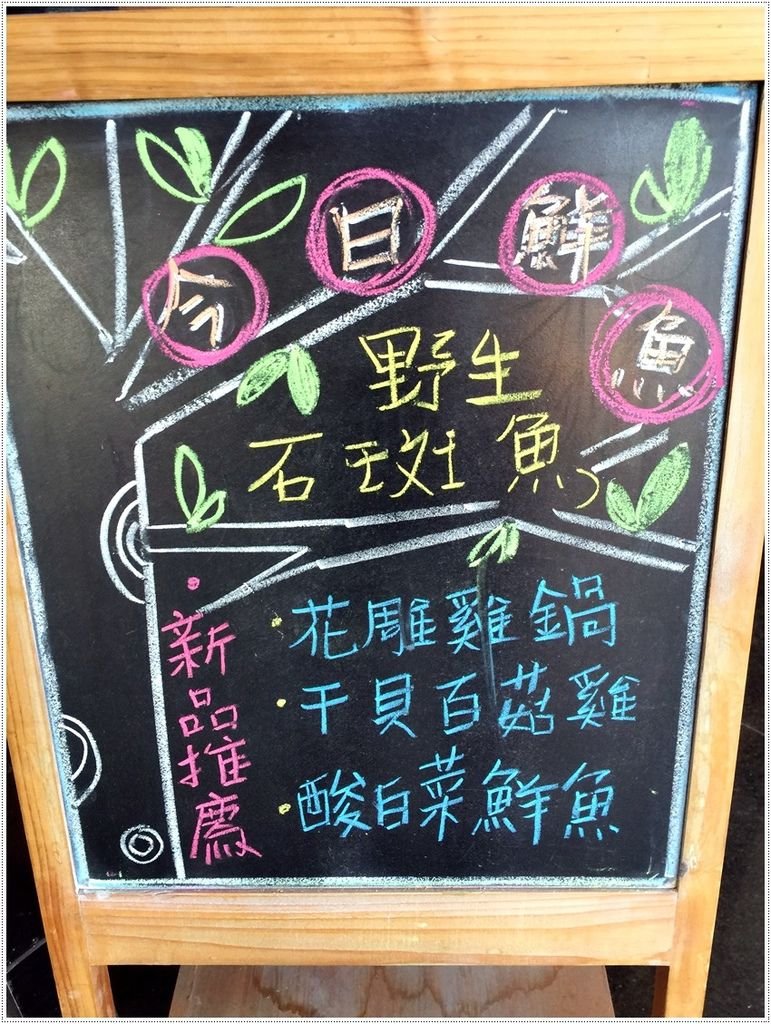 今日鮮魚
野生
石斑魚
新品推薦
花雕雞鍋
干貝百菇雞
酸白菜鮮魚